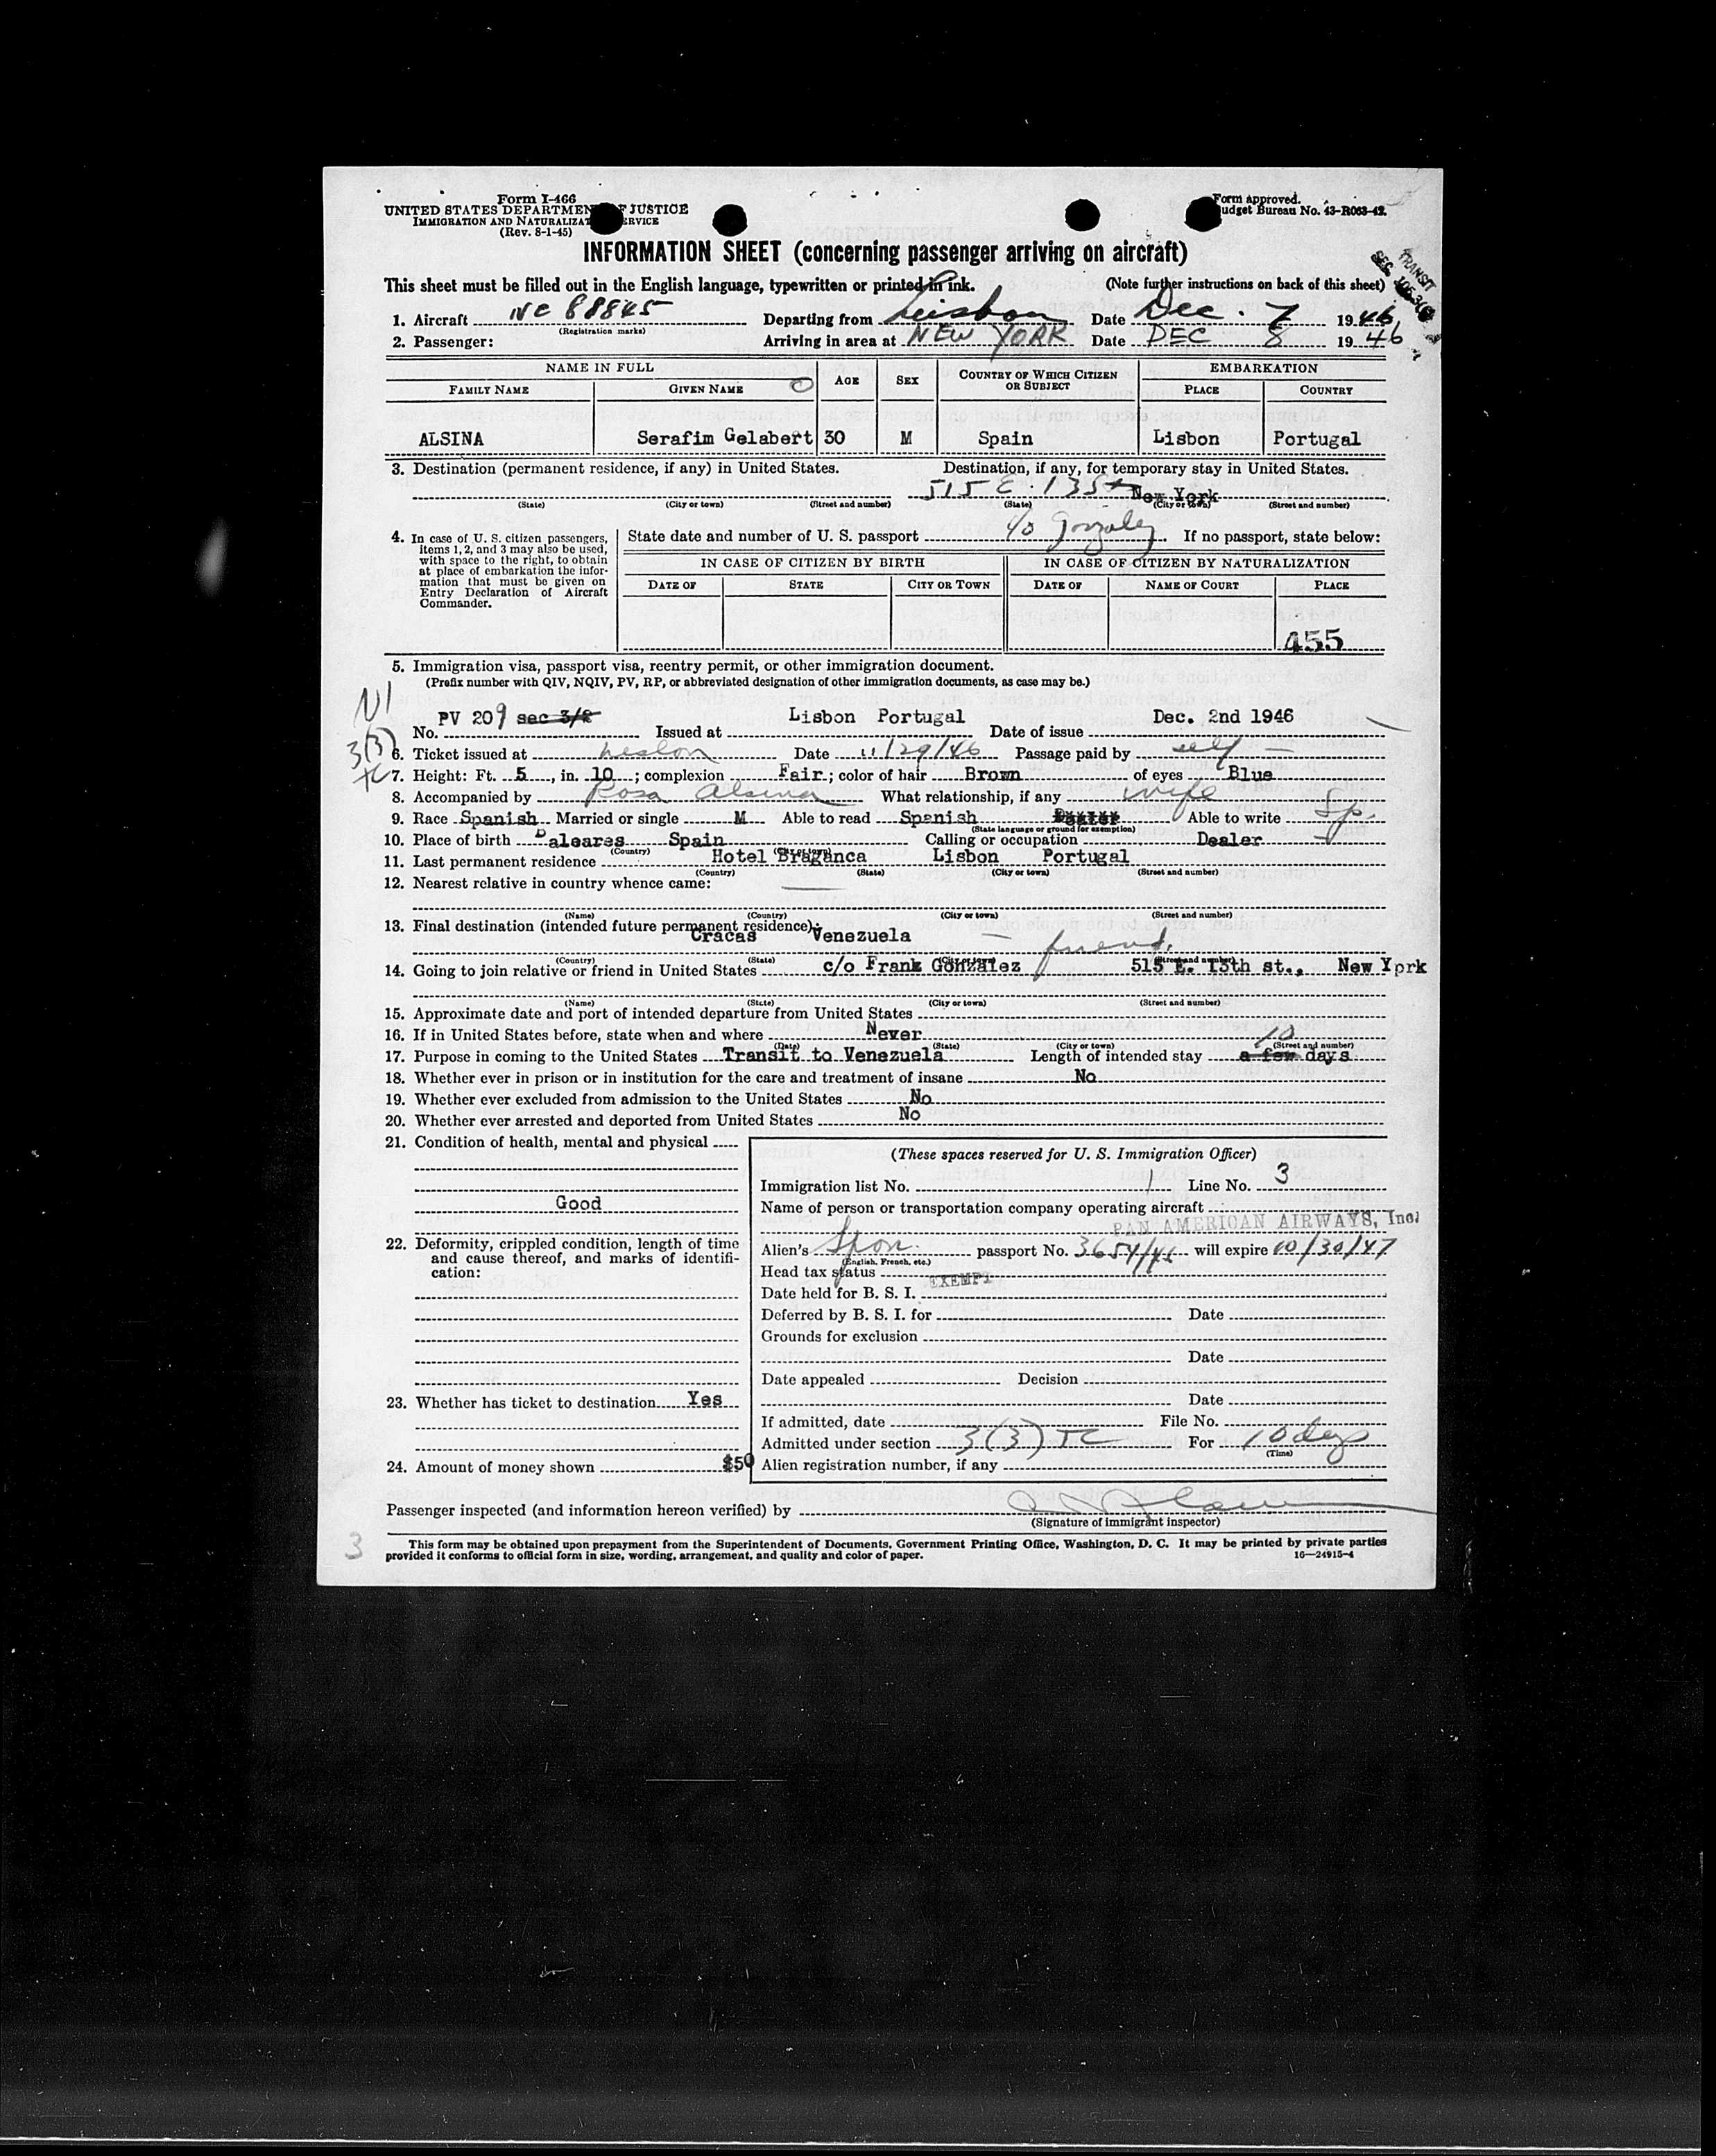 Form I-466
UNITED STATES DEPARTMEN F JUSTICE
IMMIGRATION AND NATURALIZAT ERVICE
(Rev. 8-1-45)
Form approved.
udget Bureau No. 43-R063-42.
INFORMATION SHEET (concerning passenger arriving on aircraft)
This sheet must be filled out in the English language, typewritten or printed in ink. (Note further instructions on back of this sheet)
TRANSIT
SEC.
1. Aircraft NC 88845 Departing from Lisbon Date Dec. 7 1946
(Registration marks)
2. Passenger: Arriving in area at NEW YORK Date DEC 8 1946
NAME IN FULL AGE SEX COUNTRY OF WHICH CITIZEN OR SUBJECT EMBARKATION
FAMILY NAME GIVEN NAME PLACE COUNTRY
ALSINA Serafim Gelabert 30 M Spain Lisbon Portugal
3. Destination (permanent residence, if any) in United States. Destination, if any, for temporary stay in United States.
515 E. 135 New York
(State) (City or town) (Street and number) (State) (City or town) (Street and number)
4. In case of U. S. citizen passengers, items 1, 2, and 3 may also be used, with space to the right, to obtain at place of embarkation the information that must be given on Entry Declaration of Aircraft Commander.
State date and number of U. S. passport c/o Gonzalez. If no passport, state below:
IN CASE OF CITIZEN BY BIRTH IN CASE OF CITIZEN BY NATURALIZATION
DATE OF STATE CITY OR TOWN DATE OF NAME OF COURT PLACE
455
5. Immigration visa, passport visa, reentry permit, or other immigration document.
(Prefix number with QIV, NQIV, PV, RP, or abbreviated designation of other immigration documents, as case may be.)
No. PV 209 sec 3/2 Issued at Lisbon Portugal Date of issue Dec. 2nd 1946
3(3)
6. Ticket issued at Lisbon Date 11/29/46 Passage paid by self
7. Height: Ft. 5, in. 10; complexion Fair; color of hair Brown of eyes Blue
8. Accompanied by Rosa Alsina What relationship, if any wife
9. Race Spanish Married or single M Able to read Spanish Able to write Sp.
(State language or ground for exemption)
10. Place of birth Baleares Spain Calling or occupation Dealer
(Country) (City or town)
11. Last permanent residence Hotel Braganca Lisbon Portugal
(Country) (State) (City or town) (Street and number)
12. Nearest relative in country whence came:
(Name) (Country) (City or town) (Street and number)
13. Final destination (intended future permanent residence):
Cracas Venezuela
(Country) (State) (City or town) (Street and number)
friend.
14. Going to join relative or friend in United States c/o Frank Gonzalez 515 E. 13th st., New York
(Name) (State) (City or town) (Street and number)
15. Approximate date and port of intended departure from United States
16. If in United States before, state when and where Never
(Date) (State) (City or town) (Street and number)
10
17. Purpose in coming to the United States Transit to Venezuela Length of intended stay a few days
18. Whether ever in prison or in institution for the care and treatment of insane No
19. Whether ever excluded from admission to the United States No
20. Whether ever arrested and deported from United States No
21. Condition of health, mental and physical
Good
22. Deformity, crippled condition, length of time and cause thereof, and marks of identification:
23. Whether has ticket to destination Yes
24. Amount of money shown $50
(These spaces reserved for U. S. Immigration Officer)
Immigration list No. 1 Line No. 3
Name of person or transportation company operating aircraft
PAN AMERICAN AIRWAYS, Inc.
Alien's Span. passport No. 3654/46 will expire 10/30/47
(English, French, etc.)
Head tax status EXEMPT
Date held for B. S. I.
Deferred by B. S. I. for Date
Grounds for exclusion
Date
Date appealed Decision
Date
If admitted, date File No.
Admitted under section 3(3) TC For 10 days
(Time)
Alien registration number, if any
Passenger inspected (and information hereon verified) by
(Signature of immigrant inspector)
3
This form may be obtained upon prepayment from the Superintendent of Documents, Government Printing Office, Washington, D. C. It may be printed by private parties
provided it conforms to official form in size, wording, arrangement, and quality and color of paper. 16—24915-4